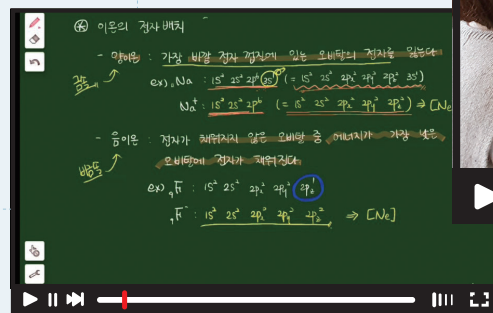 ※ 이온의 전자 배치
- 양이온 : 가장 바깥 전자 껍질에 있는 오비탈의 전자를 잃는다
금속
ex) Na : 1S² 2S² 2P⁶ 3S¹ (= 1S² 2S² 2Px² 2Py² 2Pz² 3S¹)
Na⁺ : 1S² 2S² 2P⁶ (= 1S² 2S² 2Px² 2Py² 2Pz²) ⇒ [Ne
- 음이온 : 전자가 채워지지 않은 오비탈 중 에너지가 가장 낮은
비금속
오비탈에 전자가 채워진다
ex) ₉F : 1S² 2S² 2Px² 2Py² 2Pz¹
₉F⁻ : 1S² 2S² 2Px² 2Py² 2Pz² ⇒ [Ne]